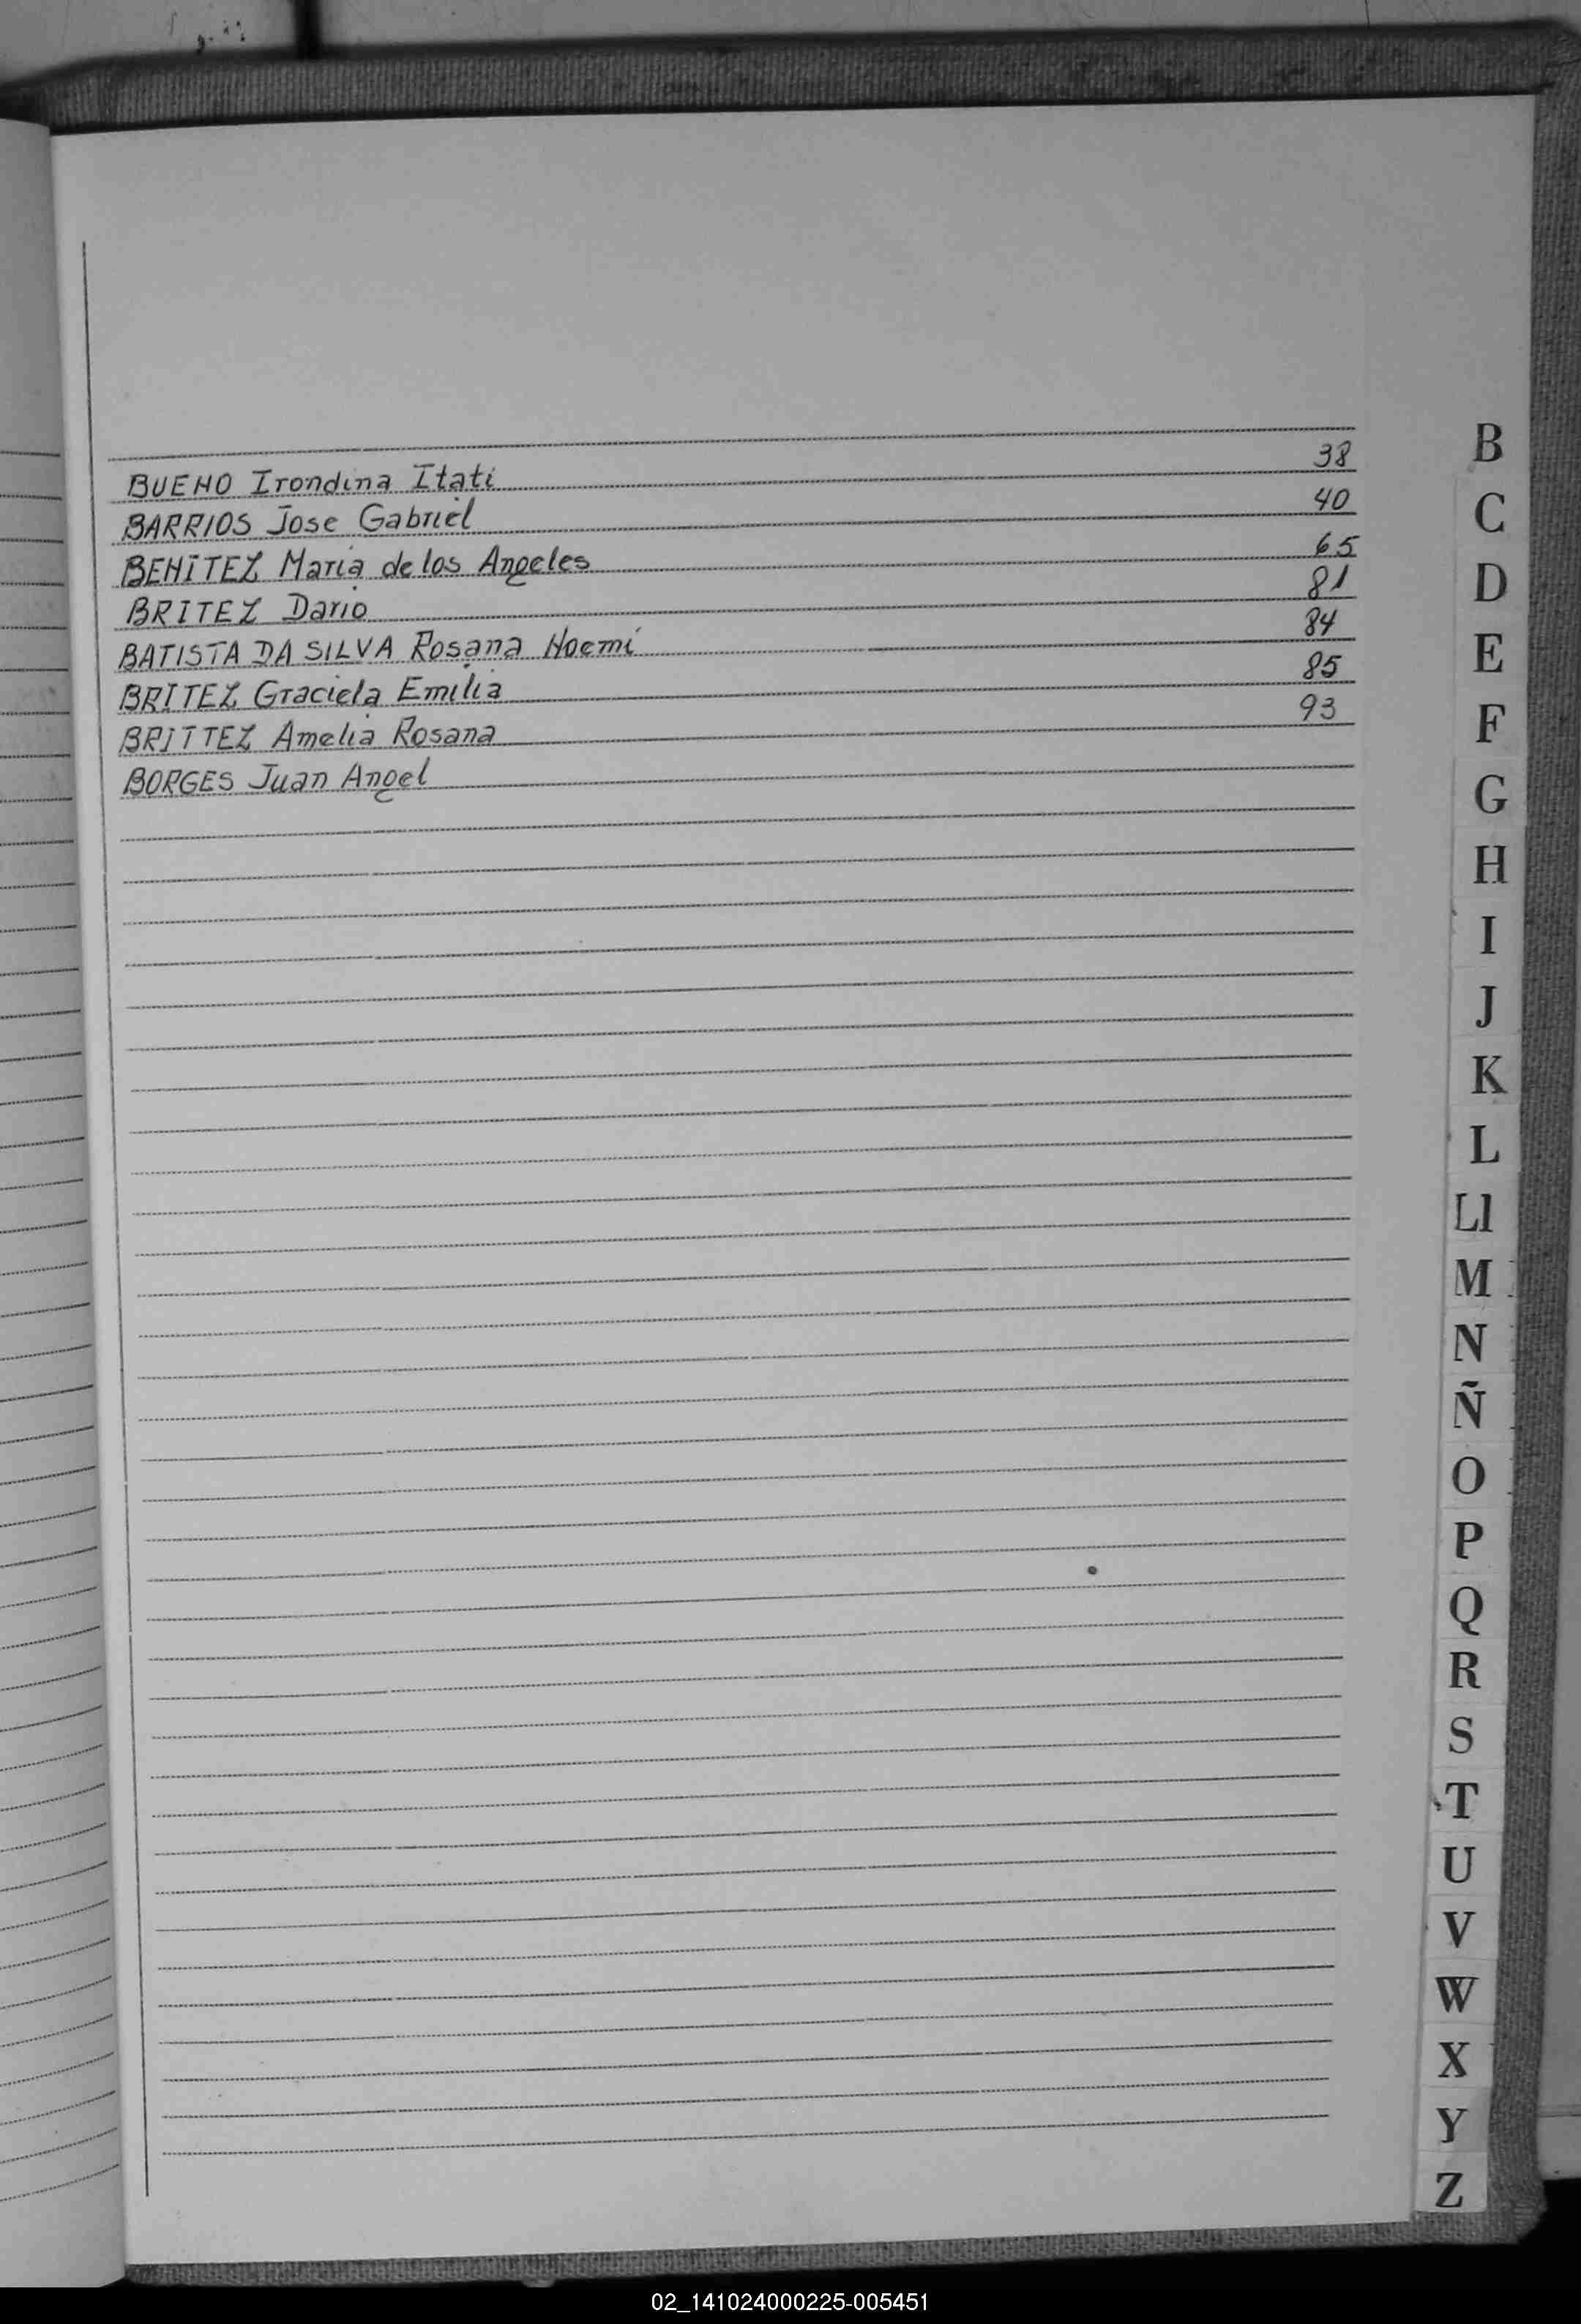 BUENO Irondina Itati 38
BARRIOS Jose Gabriel 40
BENITEZ Maria de los Angeles 65
BRITEZ Dario 81
BATISTA DA SILVA Rosana Noemí 84
BRITEZ Graciela Emilia 85
BRITTEZ Amelia Rosana 93
BORGES Juan Angel
B
C
D
E
F
G
H
I
J
K
L
Ll
M
N
Ñ
O
P
Q
R
S
T
U
V
W
X
Y
Z
02_141024000225-005451